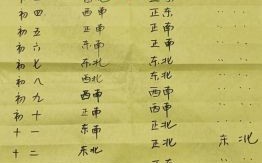 初四 西南 正东
初五 正南 正北
初六 东南 正南
初七 东北 东北
初八 西北 正北
初九 西南 西南
初十 正南 正南
十一 东南 正北 东北
十二 东北 正北